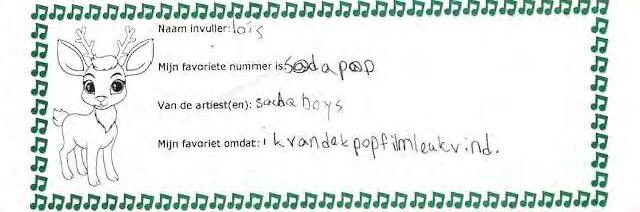 Naam invuller: lois
Mijn favoriete nummer is sodapop
Van de artiest(en): sacha boys
Mijn favoriet omdat: ik van de kpopfilm leuk vind.